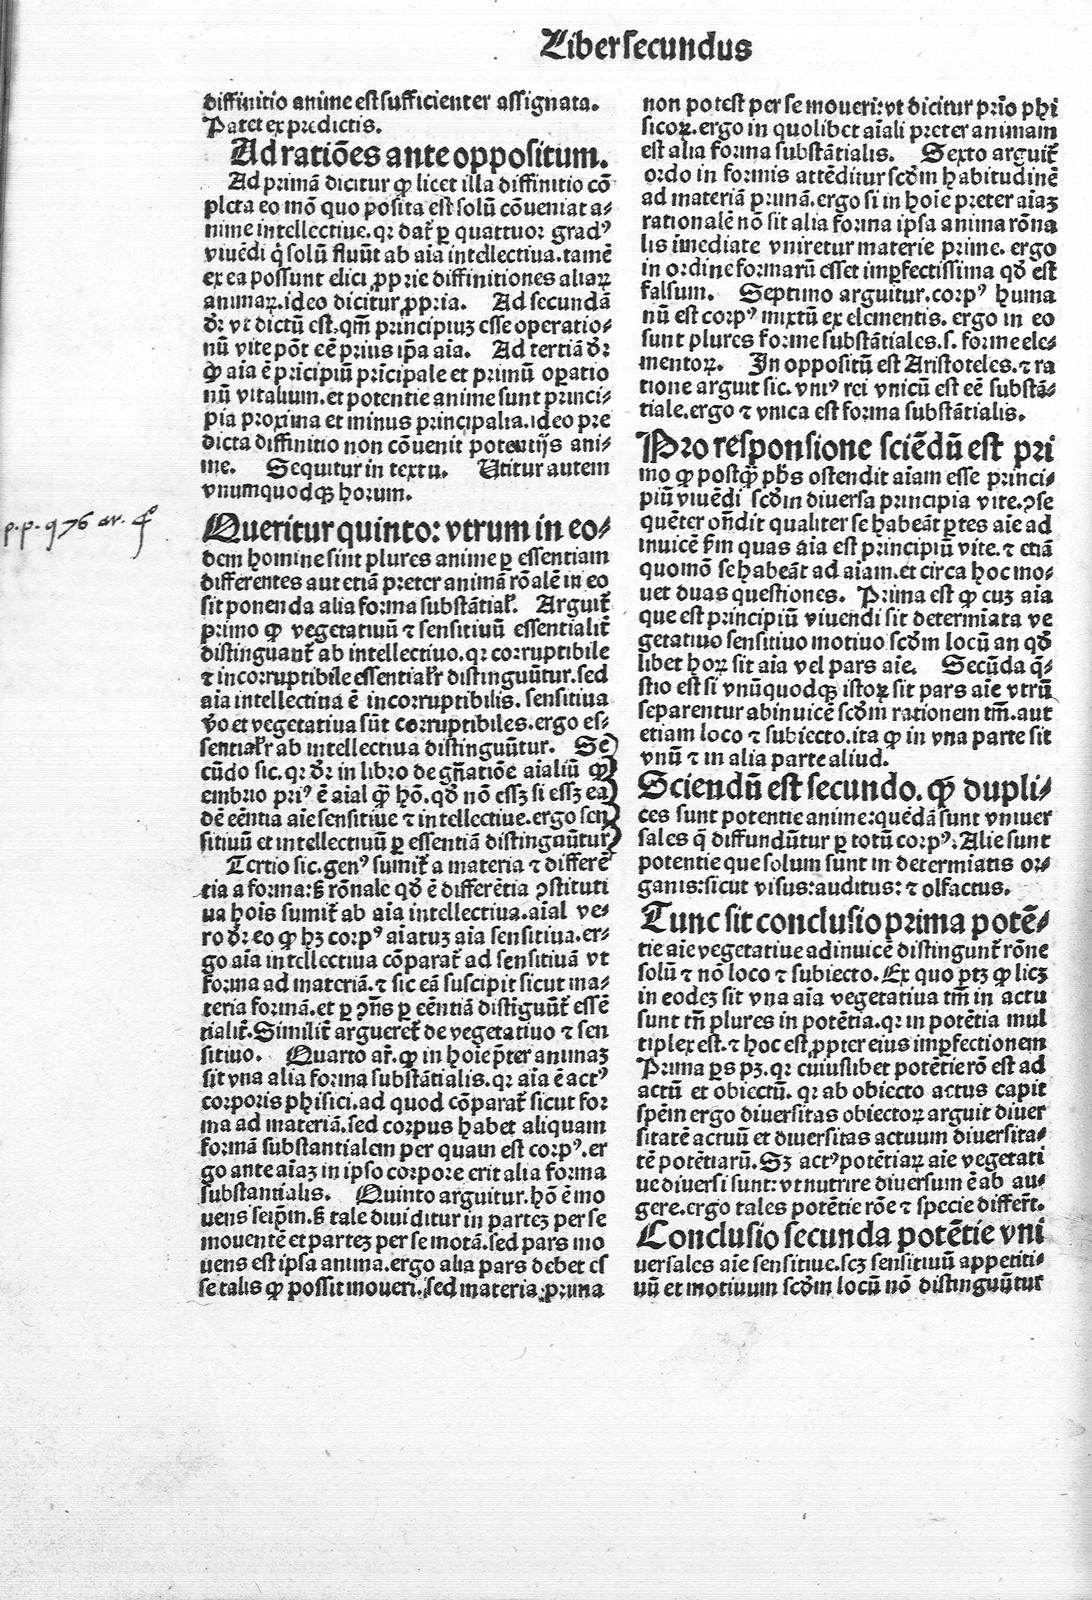 Liber secundus
diffinitio anime est sufficienter assignata.
Patet ex predictis.
Ad ratiões ante oppositum.
Ad primã dicitur ꝙ licet illa diffinitio cõ
pleta eo mõ quo posita est solũ cõueniat a⸗
nime intellectiue. qꝛ dat᷑ ꝑ quattuor gradꝰ
viuẽdi q̇ solũ fluũt ab aĩa intellectiua. tamẽ
ex ea possunt elici ꝓprie diffinitiones aliaꝝ
animaꝝ. ideo dicitur ꝓpria. Ad secundã
dr̃ vt dictũ est. qm̃ principiuꝫ esse operatio⸗
nũ vite põt eẽ prius ip̃a aĩa. Ad tertiã dr̃
ꝙ aĩa ẽ prĩcipiũ prĩcipale et primũ oꝑatio
nũ vitalium. et potentie anime sunt princi⸗
pia proxima et minus principalia. ideo pre
dicta diffinitio non cõuenit potentijs ani⸗
me. Sequitur in textu. Utitur autem
vnumquodqꝫ horum.
p. p. q 76 ar. 4º
Queritur quinto: vtrum in eo⸗
dem homine sint plures anime ꝑ essentiam
differentes aut etiã preter animã rõalẽ in eo
sit ponenda alia forma substãtial᷑. Arguit᷑
primo ꝙ vegetatiuũ ⁊ sensitiuũ essentialit᷑
distinguant᷑ ab intellectiuo. qꝛ corruptibile
⁊ incorruptibile essential᷑r distinguũtur. sed
aĩa intellectiua ẽ incorruptibilis. sensitiua
v̄o et vegetatiua sũt corruptibiles. ergo es⸗
sential᷑r ab intellectiua distinguũtur. Se
cũdo sic. qꝛ dr̃ in libro de gñatiõe aĩaliũ ꝙ
embrio priꝰ ẽ aĩal q̃ȝ hõ. qđ nõ essꝫ si essꝫ ea
dẽ eẽntia aĩe sensitiue ⁊ intellectiue. ergo sen
sitiuũ et intellectiuũ ꝑ essentiã distinguũtur
Tertio sic. genꝰ sumit᷑ a materia ⁊ differẽ
tia a forma: s̃ rõnale qđ ẽ differẽtia ꝯstituti
ua hoĩs sumit᷑ ab aĩa intellectiua. aĩal ve⸗
ro dr̃ eo ꝙ hꝫ corpꝰ aĩatuꝫ aĩa sensitiua. er⸗
go aĩa intellectiua cõparat᷑ ad sensitiuã vt
forma ad materiã. ⁊ sic eã suscipit sicut ma⸗
teria formã. et ꝑ ꝯñs ꝑ eẽntiã distiguũt᷑ essẽ
tialit᷑. Similit᷑ argueret᷑ de vegetatiuo ⁊ sen
sitiuo. Quarto ar᷑. ꝙ in hoĩe p̃ter animaꝫ
sit vna alia forma substãtialis. qꝛ aĩa ẽ actꝰ
corporis phisici. ad quod cõparat᷑ sicut for
ma ad materiã. sed corpus habet aliquam
formã substantialem per quam est corpꝰ. er
go ante aĩaꝫ in ipso corpore erit alia forma
substantialis. Quinto arguitur. hõ ẽ mo
uens seip̃m. s̃ tale diuiditur in parteꝫ per se
mouentẽ et parteꝫ per se motã. sed pars mo
uens est ipsa anima. ergo alia pars debet es
se talis ꝙ possit moueri. sed materia prima
non potest per se moueri: vt dicitur prĩo phi
sicoꝝ. ergo in quolibet aĩali preter animam
est alia forma substãtialis. Sexto arguit᷑
ordo in formis attẽditur scd̃m habitudinẽ
ad materiã primã. ergo si in hoĩe preter aĩaꝫ
rationalẽ nõ sit alia forma ipsa anima rõna
lis ĩmediate vniretur materie prime. ergo
in ordine formarũ esset imperfectissima qđ est
falsum. Septimo arguitur. corpꝰ huma
nũ est corpꝰ mixtũ ex elementis. ergo in eo
sunt plures forme substãtiales. s. forme ele⸗
mentoꝝ. In oppositũ est Aristoteles. ⁊ ra
tione arguit sic. vniꝰ rei vnicũ est eẽ substã⸗
tiale. ergo ⁊ vnica est forma substãtialis.
Pro responsione sciẽdũ est pri
mo ꝙ postq̃ȝ ph̃s ostendit aĩam esse princi⸗
piũ viuẽdi scd̃m diuersa principia vite. ꝯse
quẽter oñdit qualiter se habeãt ꝑtes aĩe ad
inuicẽ ẜm quas aĩa est principiũ vite. ⁊ etiã
quomõ se habeãt ad aĩam. et circa hoc mo⸗
uet duas questiones. Prima est ꝙ cuꝫ aĩa
que est principiũ viuendi sit determĩata ve
getatiuo sensitiuo motiuo scd̃m locũ an qđ
libet hoꝝ sit aĩa vel pars aĩe. Secũda q̃⸗
stio est si vnũquodqꝫ istoꝝ sit pars aĩe vtrũ
separentur abinuicẽ scd̃m rationem tm̃. aut
etiam loco ⁊ subiecto. ita ꝙ in vna parte sit
vnũ ⁊ in alia parte aliud.
Sciendũ est secundo. ꝙ dupli⸗
ces sunt potentie anime: quẽdã sunt vniuer
sales q̃ diffundũtur ꝑ totũ corpꝰ. Alie sunt
potentie que solum sunt in determiatis or⸗
ganis: sicut visus: auditus: ⁊ olfactus.
Tunc sit conclusio prima potẽ⸗
tie aĩe vegetatiue adinuicẽ distingunt᷑ rõne
solũ ⁊ nõ loco ⁊ subiecto. Ex quo ptꝫ ꝙ licꝫ
in eodeꝫ sit vna aĩa vegetatiua tm̃ in actu
sunt tñ plures in potẽtia. qꝛ in potẽtia mul
tiplex est. ⁊ hoc est ꝓpter eius imꝑfectionem
Prima ꝑs pꝫ. qꝛ cuiuslibet potẽtie rõ est ad
actũ et obiectũ. qꝛ ab obiecto actus capit
spẽm ergo diuersitas obiectoꝝ arguit diuer
sitatẽ actuũ et diuersitas actuum diuersita⸗
tẽ potẽtiarũ. Sꝫ actꝰ potẽtiaꝝ aĩe vegetati
ue diuersi sunt: vt nutrire diuersum ẽ ab au⸗
gere. ergo tales potẽtie rõe ⁊ specie differt᷑.
Conclusio secunda potẽtie vni
uersales aĩe sensitiue. scꝫ sensitiuũ appetiti⸗
uũ et motiuum scd̃m locũ nõ distinguũtur